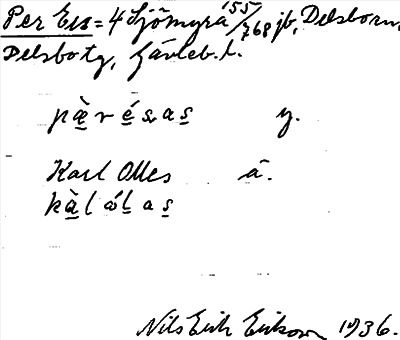 Per Ers = 4 Sjömyra 155/768 jb, Delsbo sn,
Delsbo tg, Gävleb. l.
pà̱r é̱sas̱ y.
Karl Olles ä.
kà̱l óḻas̱
Nils Erik Erikson 1936.